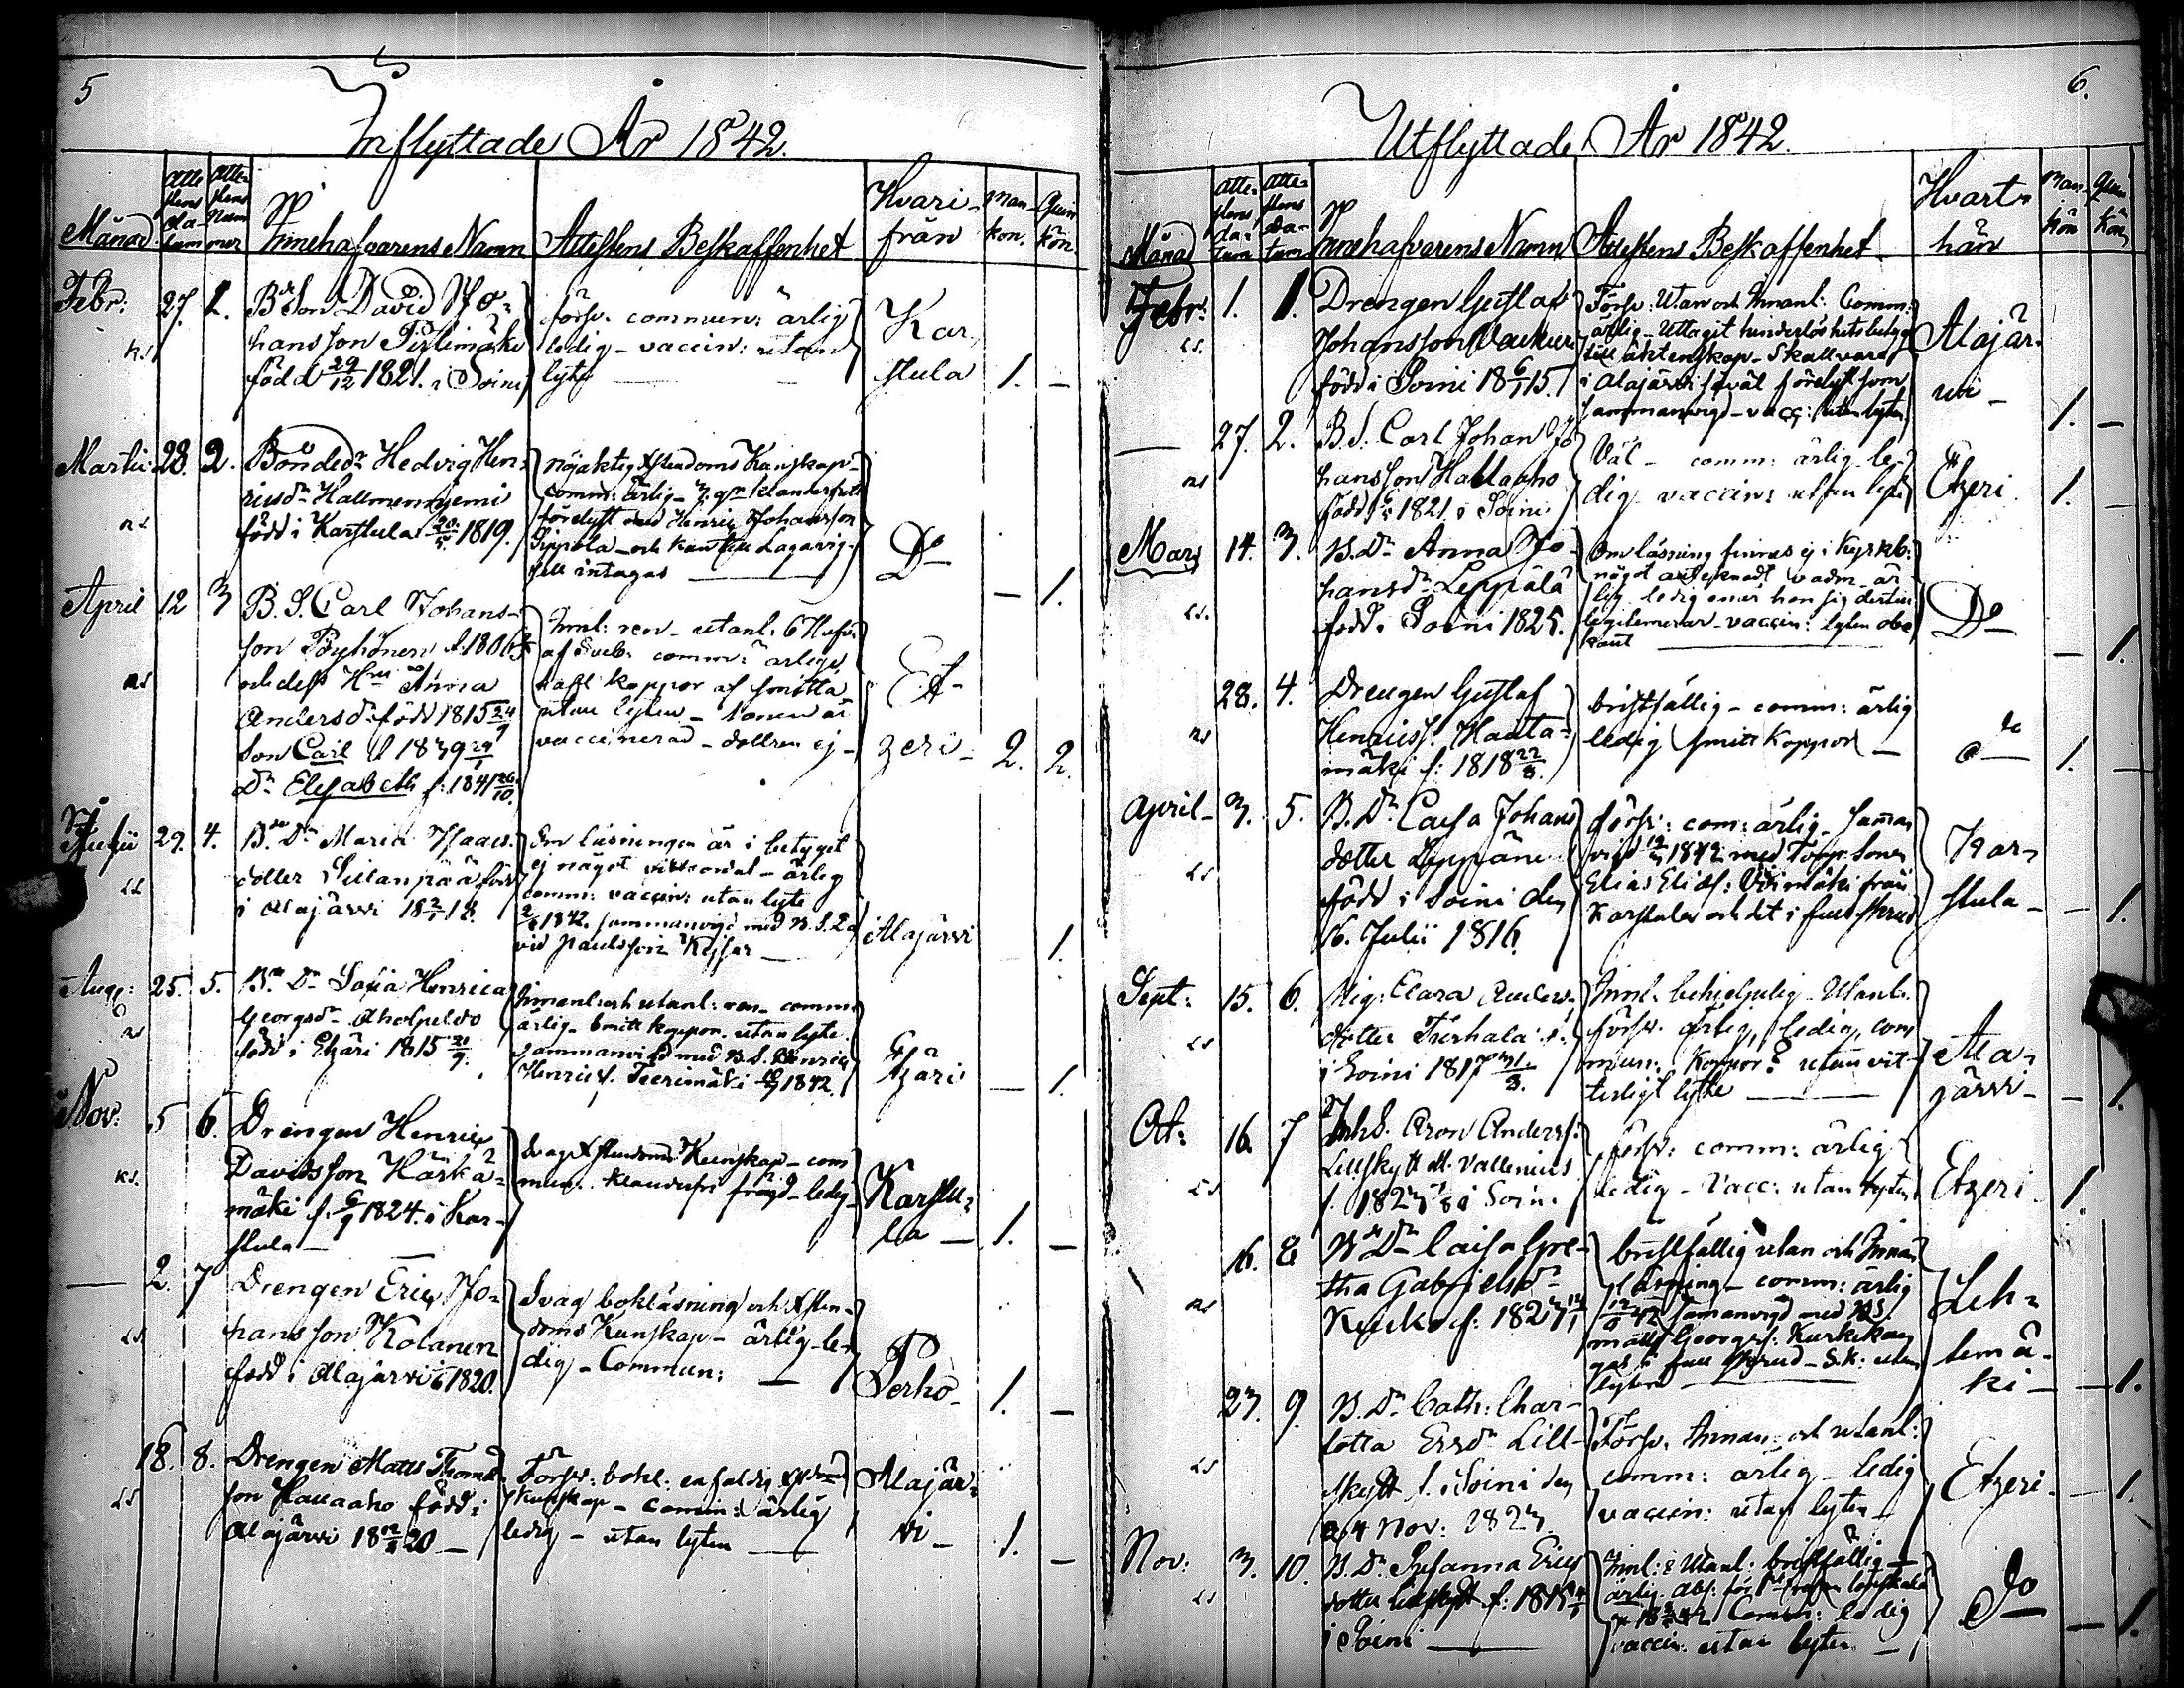 5
Inflyttade År 1842.
Månad
Atte stens da- tum
Atte- stens Num mer
Innehafvarens Namn
Attestens Beskaffenhet
Hvari- från
Man- kön.
Quin kön.
Febr: 27. 1. B Son David Jo-
hansson
född 29/12 1821 i Soini
förs. commun: ärlig
ledig - vaccin: utan
lyte
Kar
stula 1. -
Martii 28. 2. Bonded:r Hedvig Hen-
ricsd:r Hallmenhjemi
född i Karstula 20/5 1819.
nöjaktig Xstendoms Kunskap -
comm: ärlig
förelyst med Henric Johansson
Pippola - och kan till Lagavig-
sell intagas
D:o
- 1.
April 12 3 B. S. Carl Johans-
son Pöyhönen f. 1806
och dess H:ru Anna
Andersd:r född 1815 24/9
Son Carl f 1839 29/1
D:r Elisabeth f. 1841 26/10.
Innl: ren - utanl: 6 Hufv.
af Sveb: comm: ärlige
haft koppor af smitta
utan lyten - Sonen är
vaccinerad - dottren ej -
Et-
zeri - 2. 2.
29. 4. B. D:r Maria Isaacs
dotter Sillanpää född
i Alajärvi 18 2/1 18.
Om läsningen är i betyget
ej något - ärlig
comm: vaccin: utan lyte
1842 sammanvigd med B. S. Da
vid Paulsson
Alajärvi 1.
Aug: 25. 5. B. D:r Sofia Henrica
Georgsd:r
född i Etzäri 1815 21/9.
Innanl: och utanl: ren - comm:
ärlig - smittkoppor. utan lyte.
Sammanvigd med B. S. Henric
Henricss. Teerimäki 1842.
Etzäri - 1.
Nov: 5 6. Drengen Henric
Davidsson Härkä-
mäki f. 6/9 1824 i Kar-
stula -
Svag Xstendoms Kunskap - com
mun. klanderfri frägd - ledig
Karstu-
la - 1. -
2. 7 Drengen Eric Jo-
hansson Kolanen
född i Alajärvi 1820.
Svag bokläsning och Xsten-
doms Kunskap - ärlig - le-
dig - Commun:
Perho - 1. -
18. 8. Drengen Matts Thomas
son Hauaaho född i
Alajärvi 18 20 -
Försv: bokl: enfaldig
Kunskap - comm: ärlig
ledig - utan lyten
Alajär-
vi - 1. -
6.
Utflyttade År 1842.
Månad
Atte- stens da- tum
Atte- stens da- tum
Innehafvarens Namn
Attestens Beskaffenhet
Hvart- hän
Man- kön
Quin kön
Febr: 1. 1. Drengen Gustaf
Johansson
född i Soini 18 6/1 15.
Försv: Utan och Innanl: Comm:
ärlig - Uttagit hinderlöshetsbetyg
till äktenskap - Skall vara
i Alajärvi såväl förelyst som
sammanvigd - vacc: utan lyten
Alajär-
vi - 1. -
27. 2. B. S. Carl Johan Jo
hansson Hallaaho
född 1821 i Soini
Väl - comm: ärlig le-
dig vaccin: utan lyte
Etzeri 1. -
Mars 14. 3. B. D:r Anna Jo-
hansd:r Leppälä
född i Soini 1825.
Om läsning finnes ej i Kyrkb:
något antecknadt vadm - är
lig ledig hon sig dertill
legitimerar - vaccin: lyten obe
kant
D:o - 1.
28. 4. Drengen Gustaf
Henricss. Hauta-
mäki f: 1818 22/8.
bristfällig - comm: ärlig
ledig smittkoppor -
d:o 1. -
April - 3. 5. B. D:r Caisa Johans
dotter
född i Soini den
16. Julii 1816.
försv: com: ärlig - samman
vigd 1842 med Torp. Sonen
Elias från
Karstula
Kar-
stula - 1.
Sept: 15. 6. Pig: Clara Anders-
dotter
i Soini 1817 31/3.
Innl. behjelplig - Utanl.
försv. ärlig, ledig, com
mun: Koppor? utan vit-
terligt lyte
Ala-
järvi - - 1.
Oct: 16. 7 Aron Anderss.
Lillskytt all. Vallenius
f. 1823 i Soini
försv: comm: ärlig
ledig - Vacc: utan lyten
Etzeri 1.
16. 8 B D:r Caisa Gre-
tha Gabrielsd:r
f: 1823
bristfällig utan och Innan
läsning - comm: ärlig
sammanvigd med B.S.
Matts Georgss. Kurkikan
gas - S.K: utan
lyten
Leh-
timä-
ki - - 1.
23. 9. B. D:r Cath: Char-
lotta Ersd:r Lill-
skytt f. i Soini den
24 Nov: 1823
Försv. Innan- och utanl:
comm: ärlig - ledig
vaccin: utan lyten -
Etzeri - - 1.
Nov: 3. 10. B. D:r Susanna Erics
dotter Lillskytt f: 1815
i Soini
Innl: & Utanl: bristfällig -
ärlig.
Comm: ledig
vaccin: utan lyten -
D:o - 1.